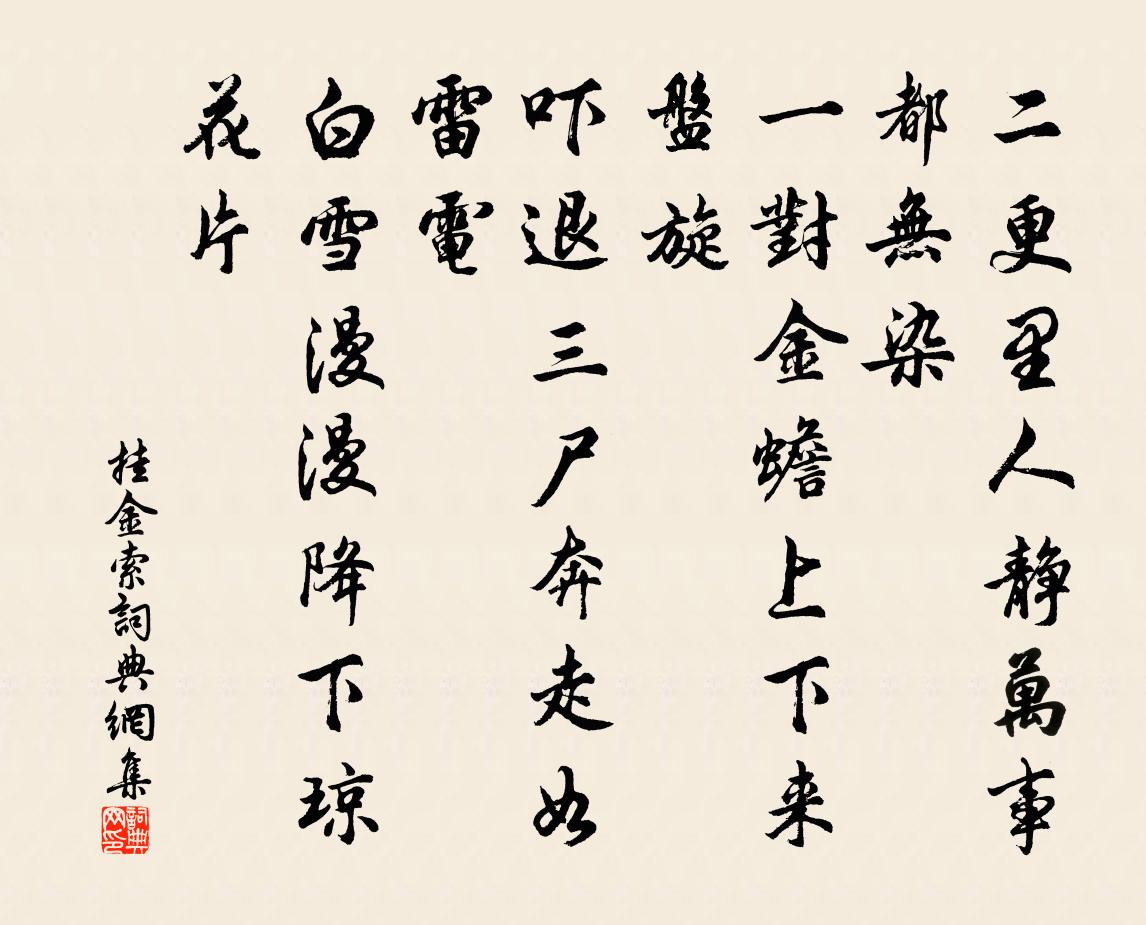 二更里人靜萬事
都無染
一對金蟾上下来
盤旋
吓退三尸奔走如
雷電
白雪漫漫降下琼
花片
挂金索詞典網集
詞典
网印